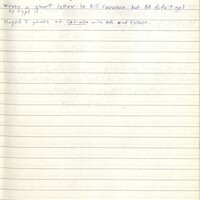 Wrote a short letter to Bill Cannon but AA didn't get
to type it.
Played 2 games of with AA and Esther.